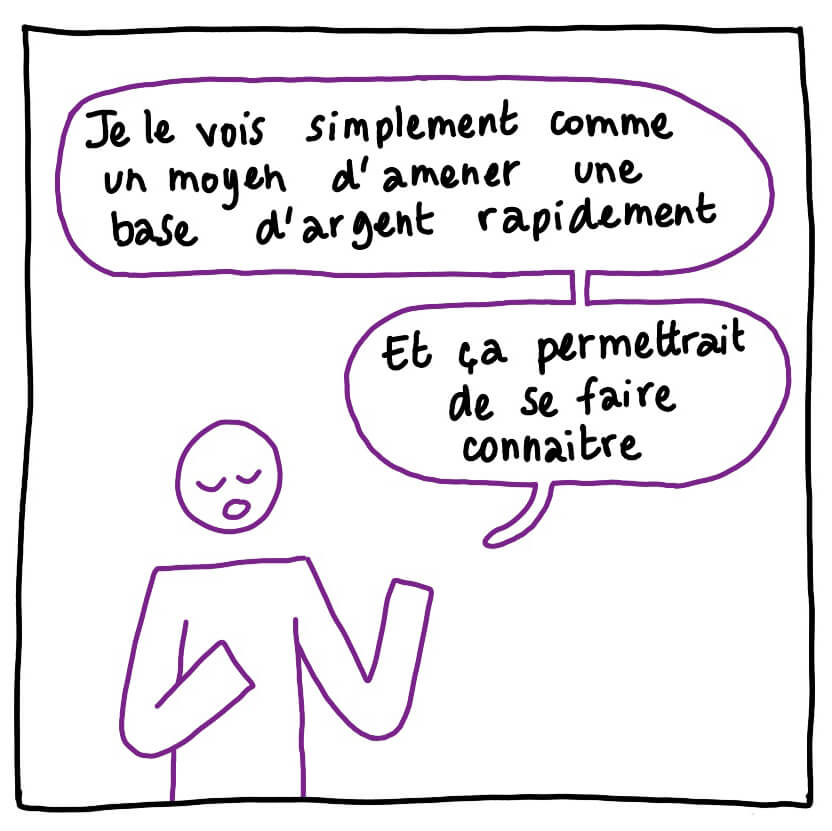 Je le vois simplement comme
un moyen d'amener une
base d'argent rapidement
Et ça permettrait
de se faire
connaitre